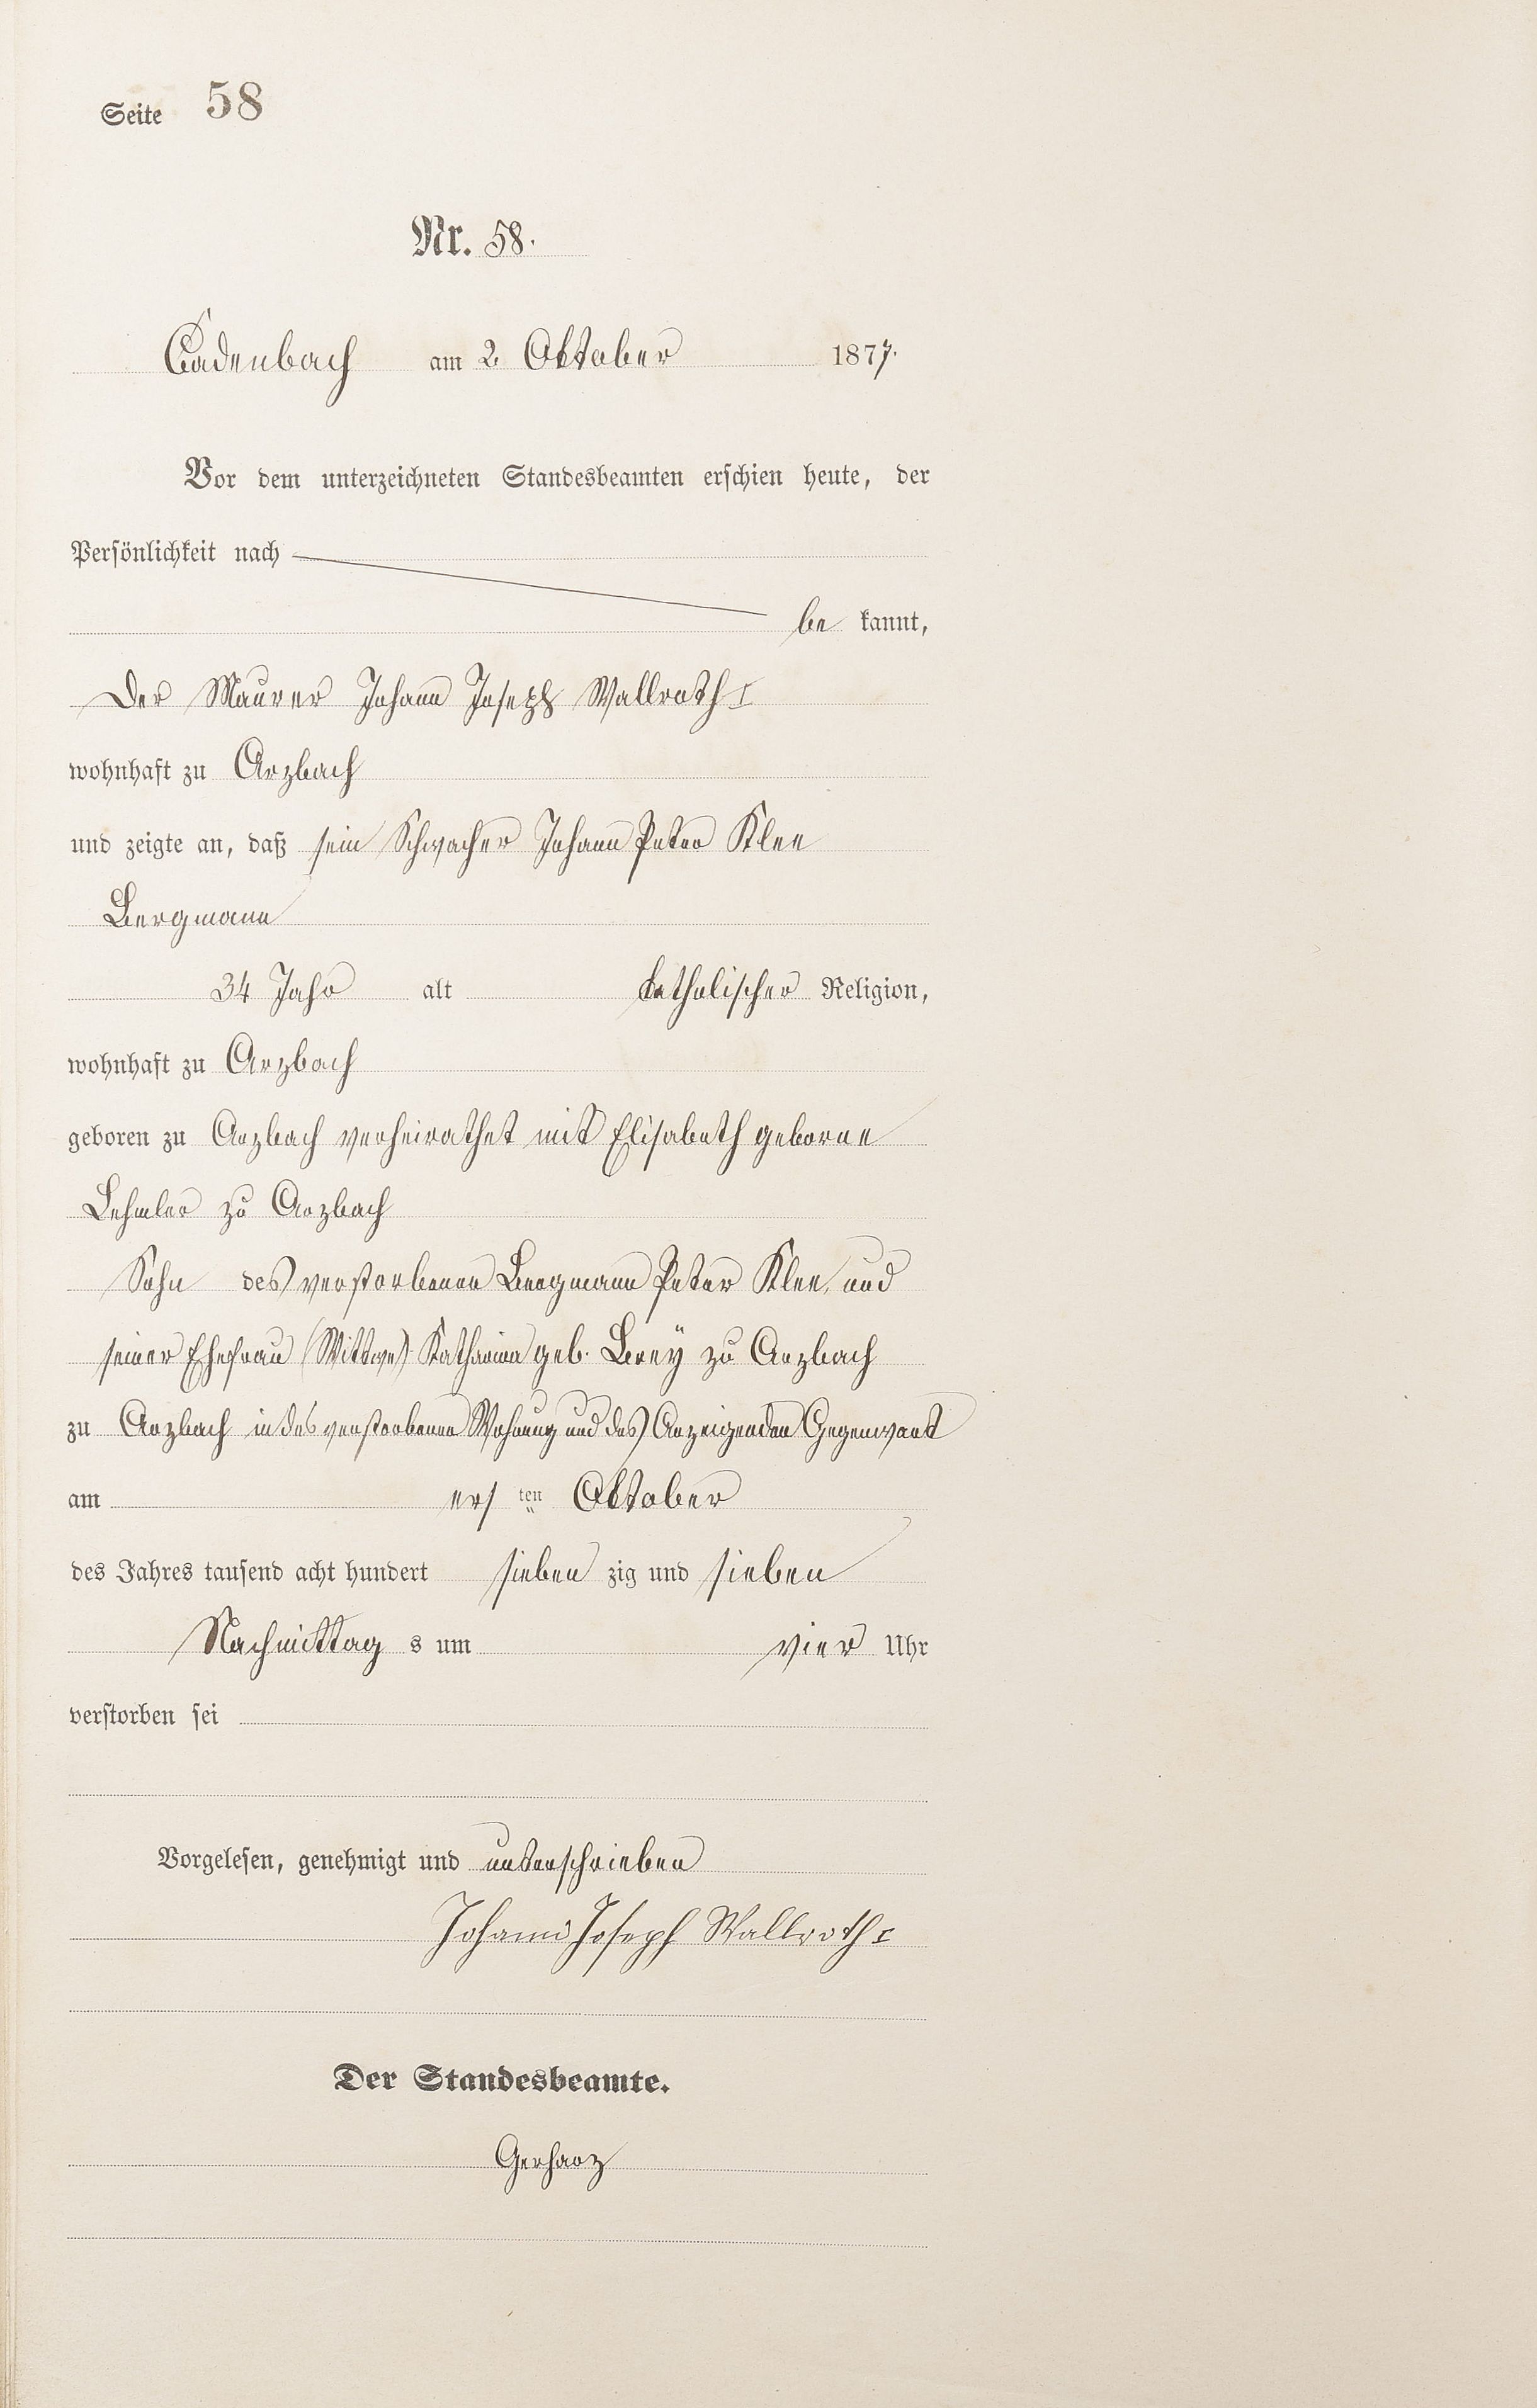 Seite 58
Nr. 58.
Cadenbach am 2 Oktober 1877.
Vor dem unterzeichneten Standesbeamten erschien heute, der
Persönlichkeit nach
be kannt,
Der Maurer Johann Joseph Wallroth I
wohnhaft zu Arzbach
und zeigte an, daß sein Schwacher Johann Peter Klee
Bergmann
34 Jahr alt katholischer Religion,
wohnhaft zu Arzbach
geboren zu Arzbach verheirathet mit Elisabeth geborne
Lehmler zu Arzbach
Sohn des verstorbenen Bergmann Peter Klee, und
seiner Ehefrau (Wittwe) Katharina geb. Brey zu Arzbach
zu Arzbach in des verstorbenen Wohnung und des Anzeigenden Gegenwart
am ers ten Oktober
des Jahres tausend acht hundert sieben zig und sieben
Nachmittag s um vier Uhr
verstorben sei
Vorgelesen, genehmigt und unterschrieben
Johann Joseph Wallroth I
Der Standesbeamte.
Gerharz